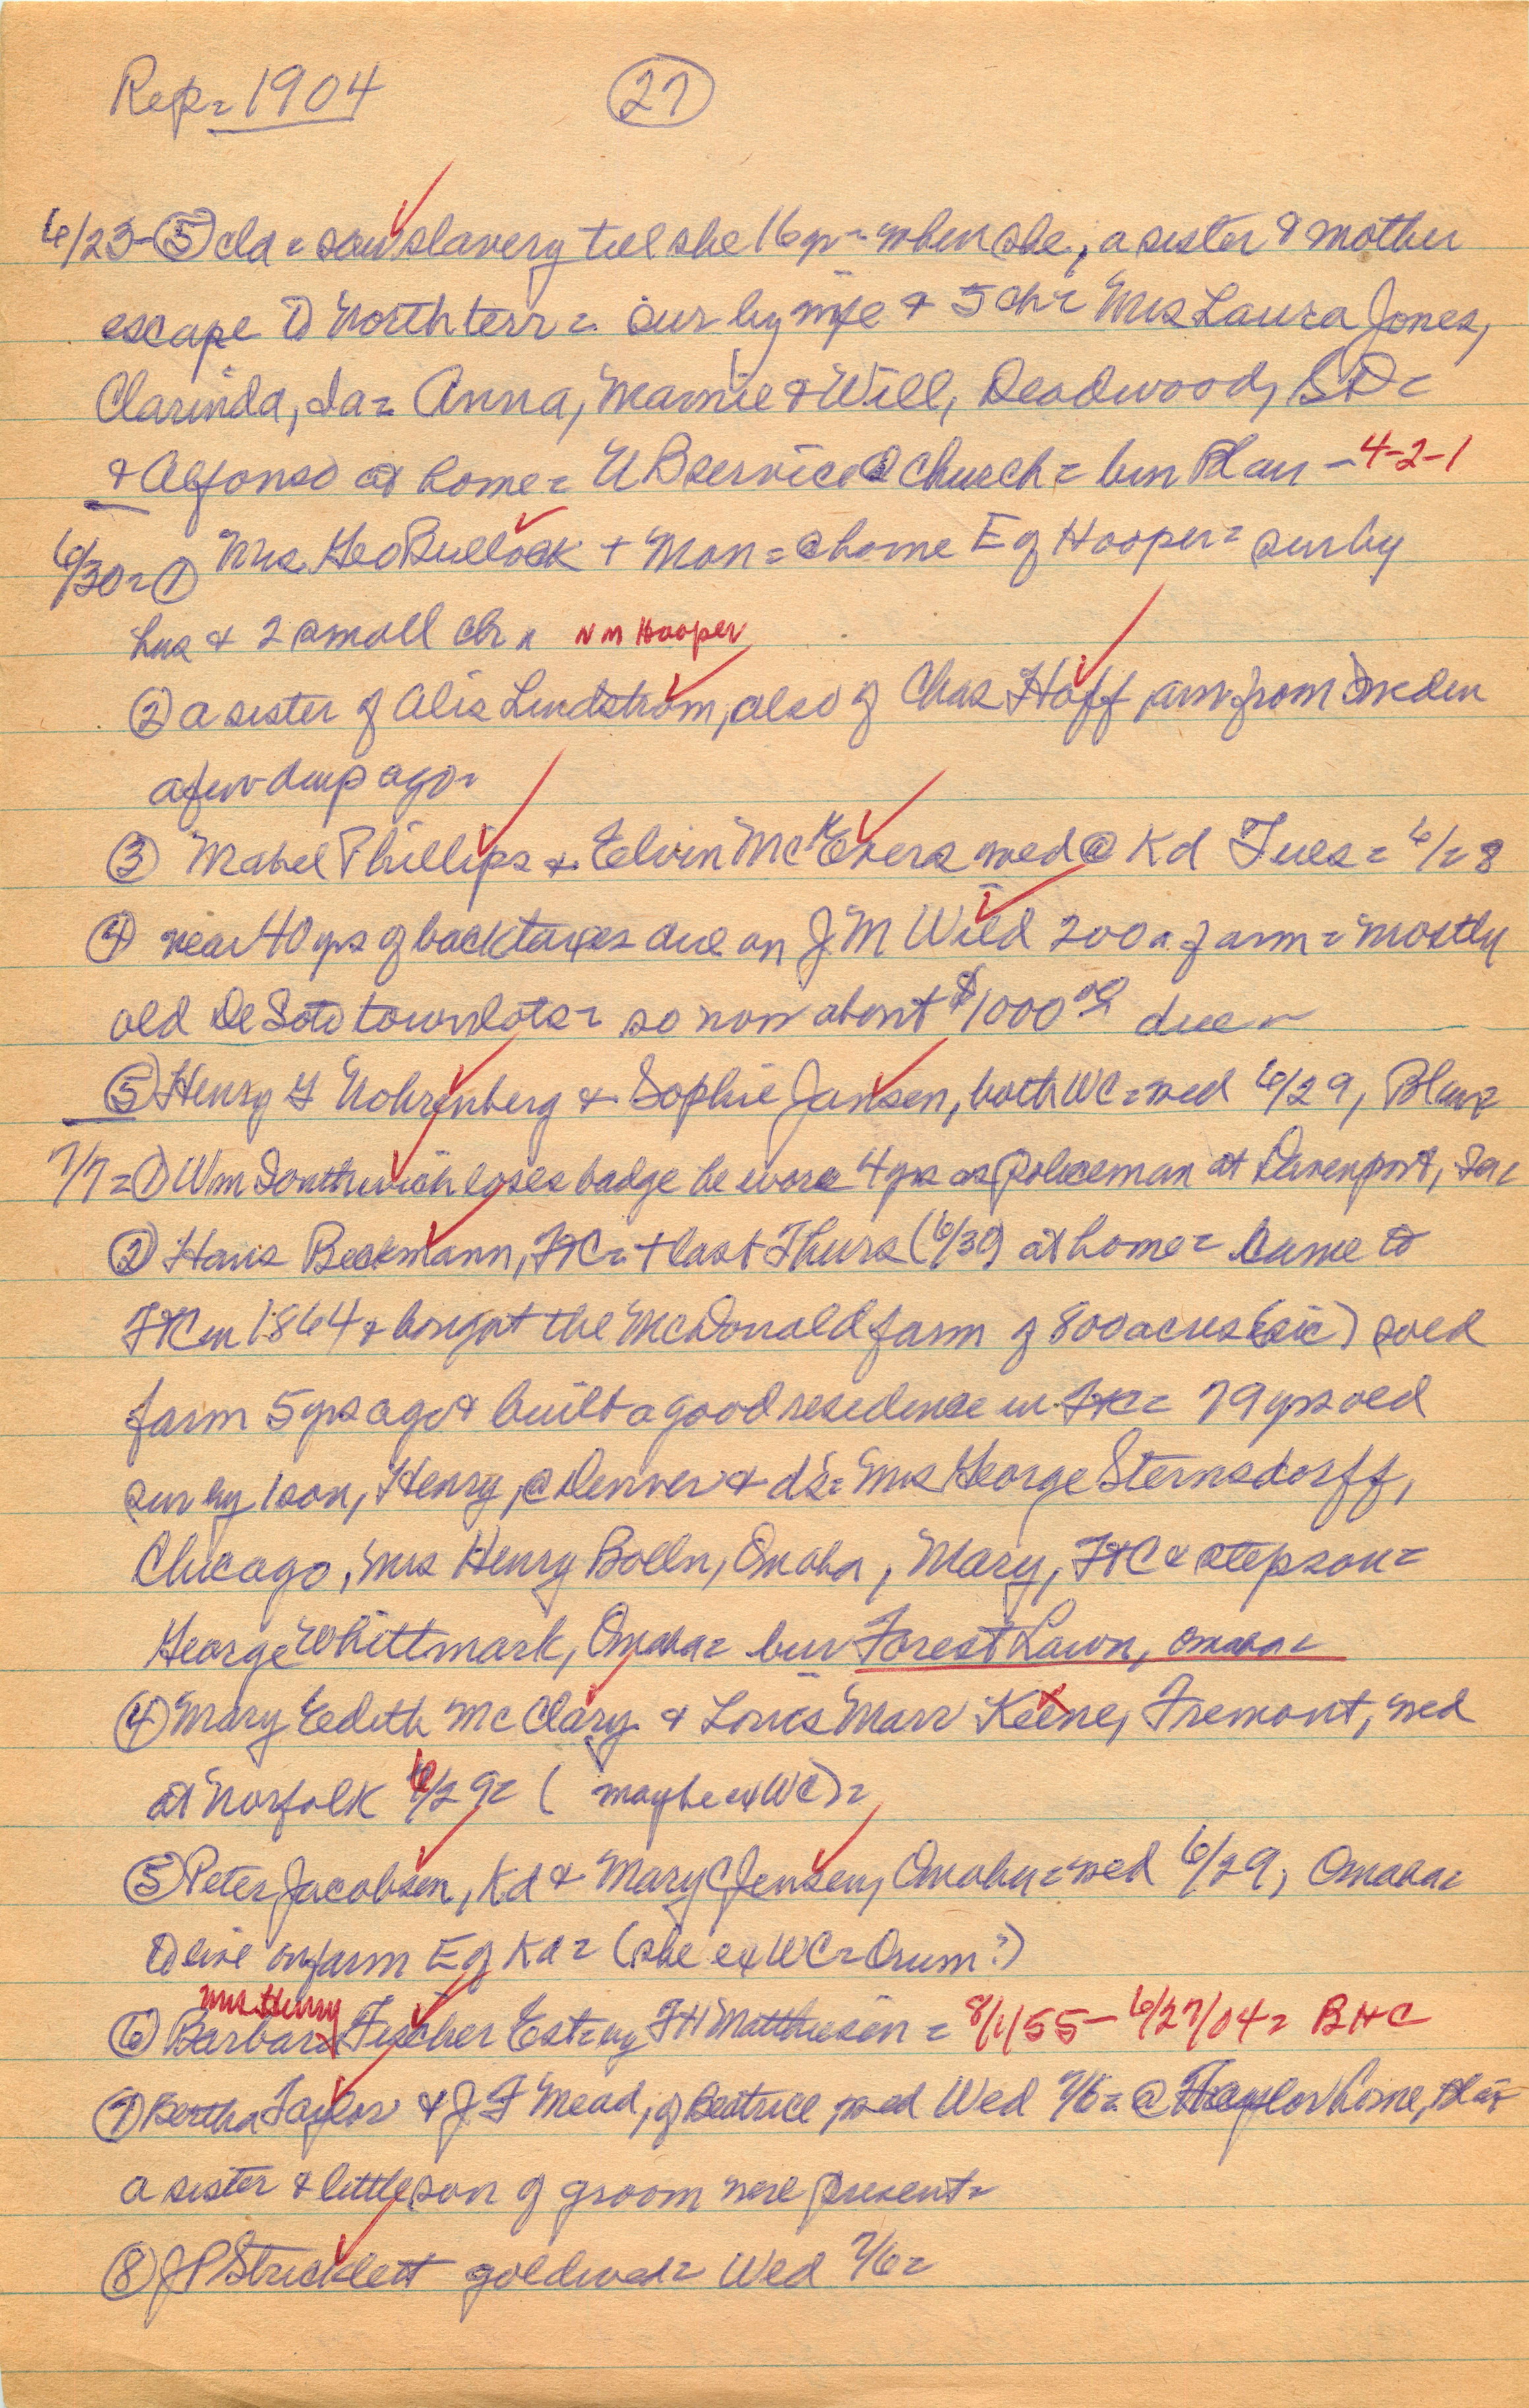 Rep = 1904 (27)
6/23 - (5) cld = saw slavery till she 16 yr = when she, a sister & mother
escape to North terr = sur by wife & 5 ch = Mrs Laura Jones,
Clarinda, Ia = Anna, Mamie & Will, Deadwood, SD =
& Alfonso at home = UB service @ church = bur Blair - 4-2-1
6/30 = (1) Mrs Geo Bullock + Mon = @ home E of Hooper = sur by
hus & 2 small ch = NM Hooper
(2) a sister of Alis Lindstrom, also of Chas Hoff, arr from Sweden
a few days ago =
(3) Mabel Phillips & Elvin McEvers wed @ Kd Tues = 6/28
(4) near 40 yrs of back taxes due on J M Wild 200 a farm = mostly
old DeSoto town lots = so now about $1000 00 due =
(5) Henry F Nohrenberg & Sophie Jansen, both WC = wed 6/29, Blair =
7/7 = (1) Wm Southwick loses badge he wore 4 yrs as policeman at Davenport, Ia =
(2) Hans Beckmann, FtC = + last Thurs (6/30) at home = came to
FtC in 1864 & bought the McDonald farm of 800 acres (sic) sold
farm 5 yrs ago & built a good residence in FtC = 79 yrs old
sur by 1 son, Henry, @ Denver & d's = Mrs George Sternsdorff,
Chicago, Mrs Henry Bolln, Omaha, Mary, FtC & stepson =
George Whittmark, Omaha = bur Forest Lawn, Omaha =
(4) Mary Edith McClary & Louis Marr Keene, Fremont, wed
at Norfolk 6/29 = ( maybe ex WC) =
(5) Peter Jacobsen, Kd & Mary C Jensen, Omaha = wed 6/29, Omaha =
to live on farm E of Kd = (she ex WC = Orum?)
Mrs Henry
(6) Barbara Fischer Est = by FH Matthiesen = 8/1/55 - 6/27/04 = BHC
(7) Bertha Taylor & J F Mead, of Beatrice, wed Wed 7/6 = @ Taylor home, Blair
a sister & little son of groom were present =
(8) JP Stricklett gold wed = Wed 7/6 =